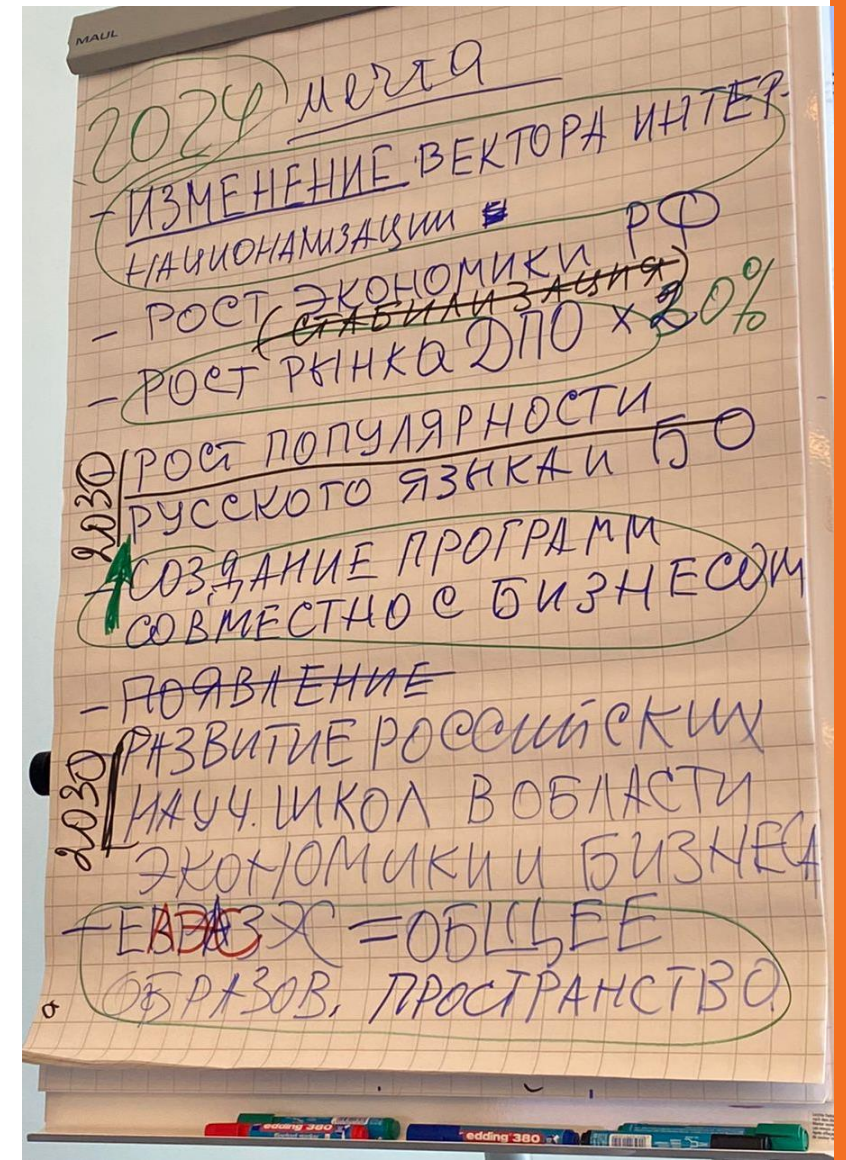 MAUL
2024 мечта
- ИЗМЕНЕНИЕ ВЕКТОРА ИНТЕР-
НАЦИОНАЛИЗАЦИИ
- РОСТ ЭКОНОМИКИ РФ
(СТАБИЛИЗАЦИЯ)
- РОСТ РЫНКА ДПО х 20%
2030 РОСТ ПОПУЛЯРНОСТИ
РУССКОГО ЯЗЫКА И БО
- СОЗДАНИЕ ПРОГРАММ
СОВМЕСТНО С БИЗНЕСОМ
- ПОЯВЛЕНИЕ
2030 РАЗВИТИЕ РОССИЙСКИХ
НАУЧ. ШКОЛ В ОБЛАСТИ
ЭКОНОМИКИ И БИЗНЕСА
- = ОБЩЕЕ
ОБРАЗОВ. ПРОСТРАНСТВО
edding 380 edding 380